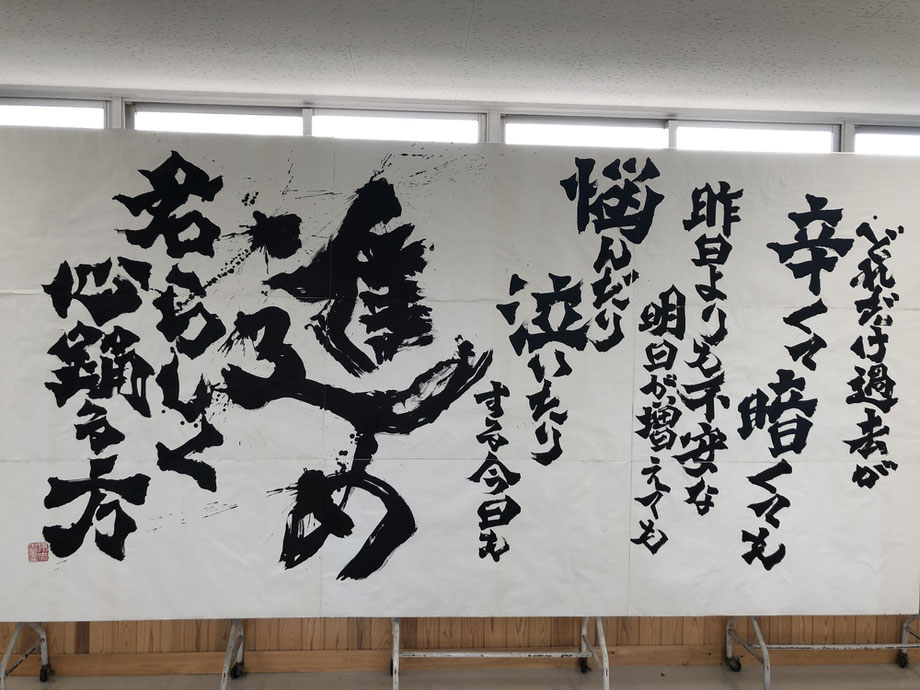 どれだけ過去が
辛くて暗くても
昨日よりも不安な
明日が増えても
悩んだり
泣いたり
する今日も
進め
君らしく
心踊る方